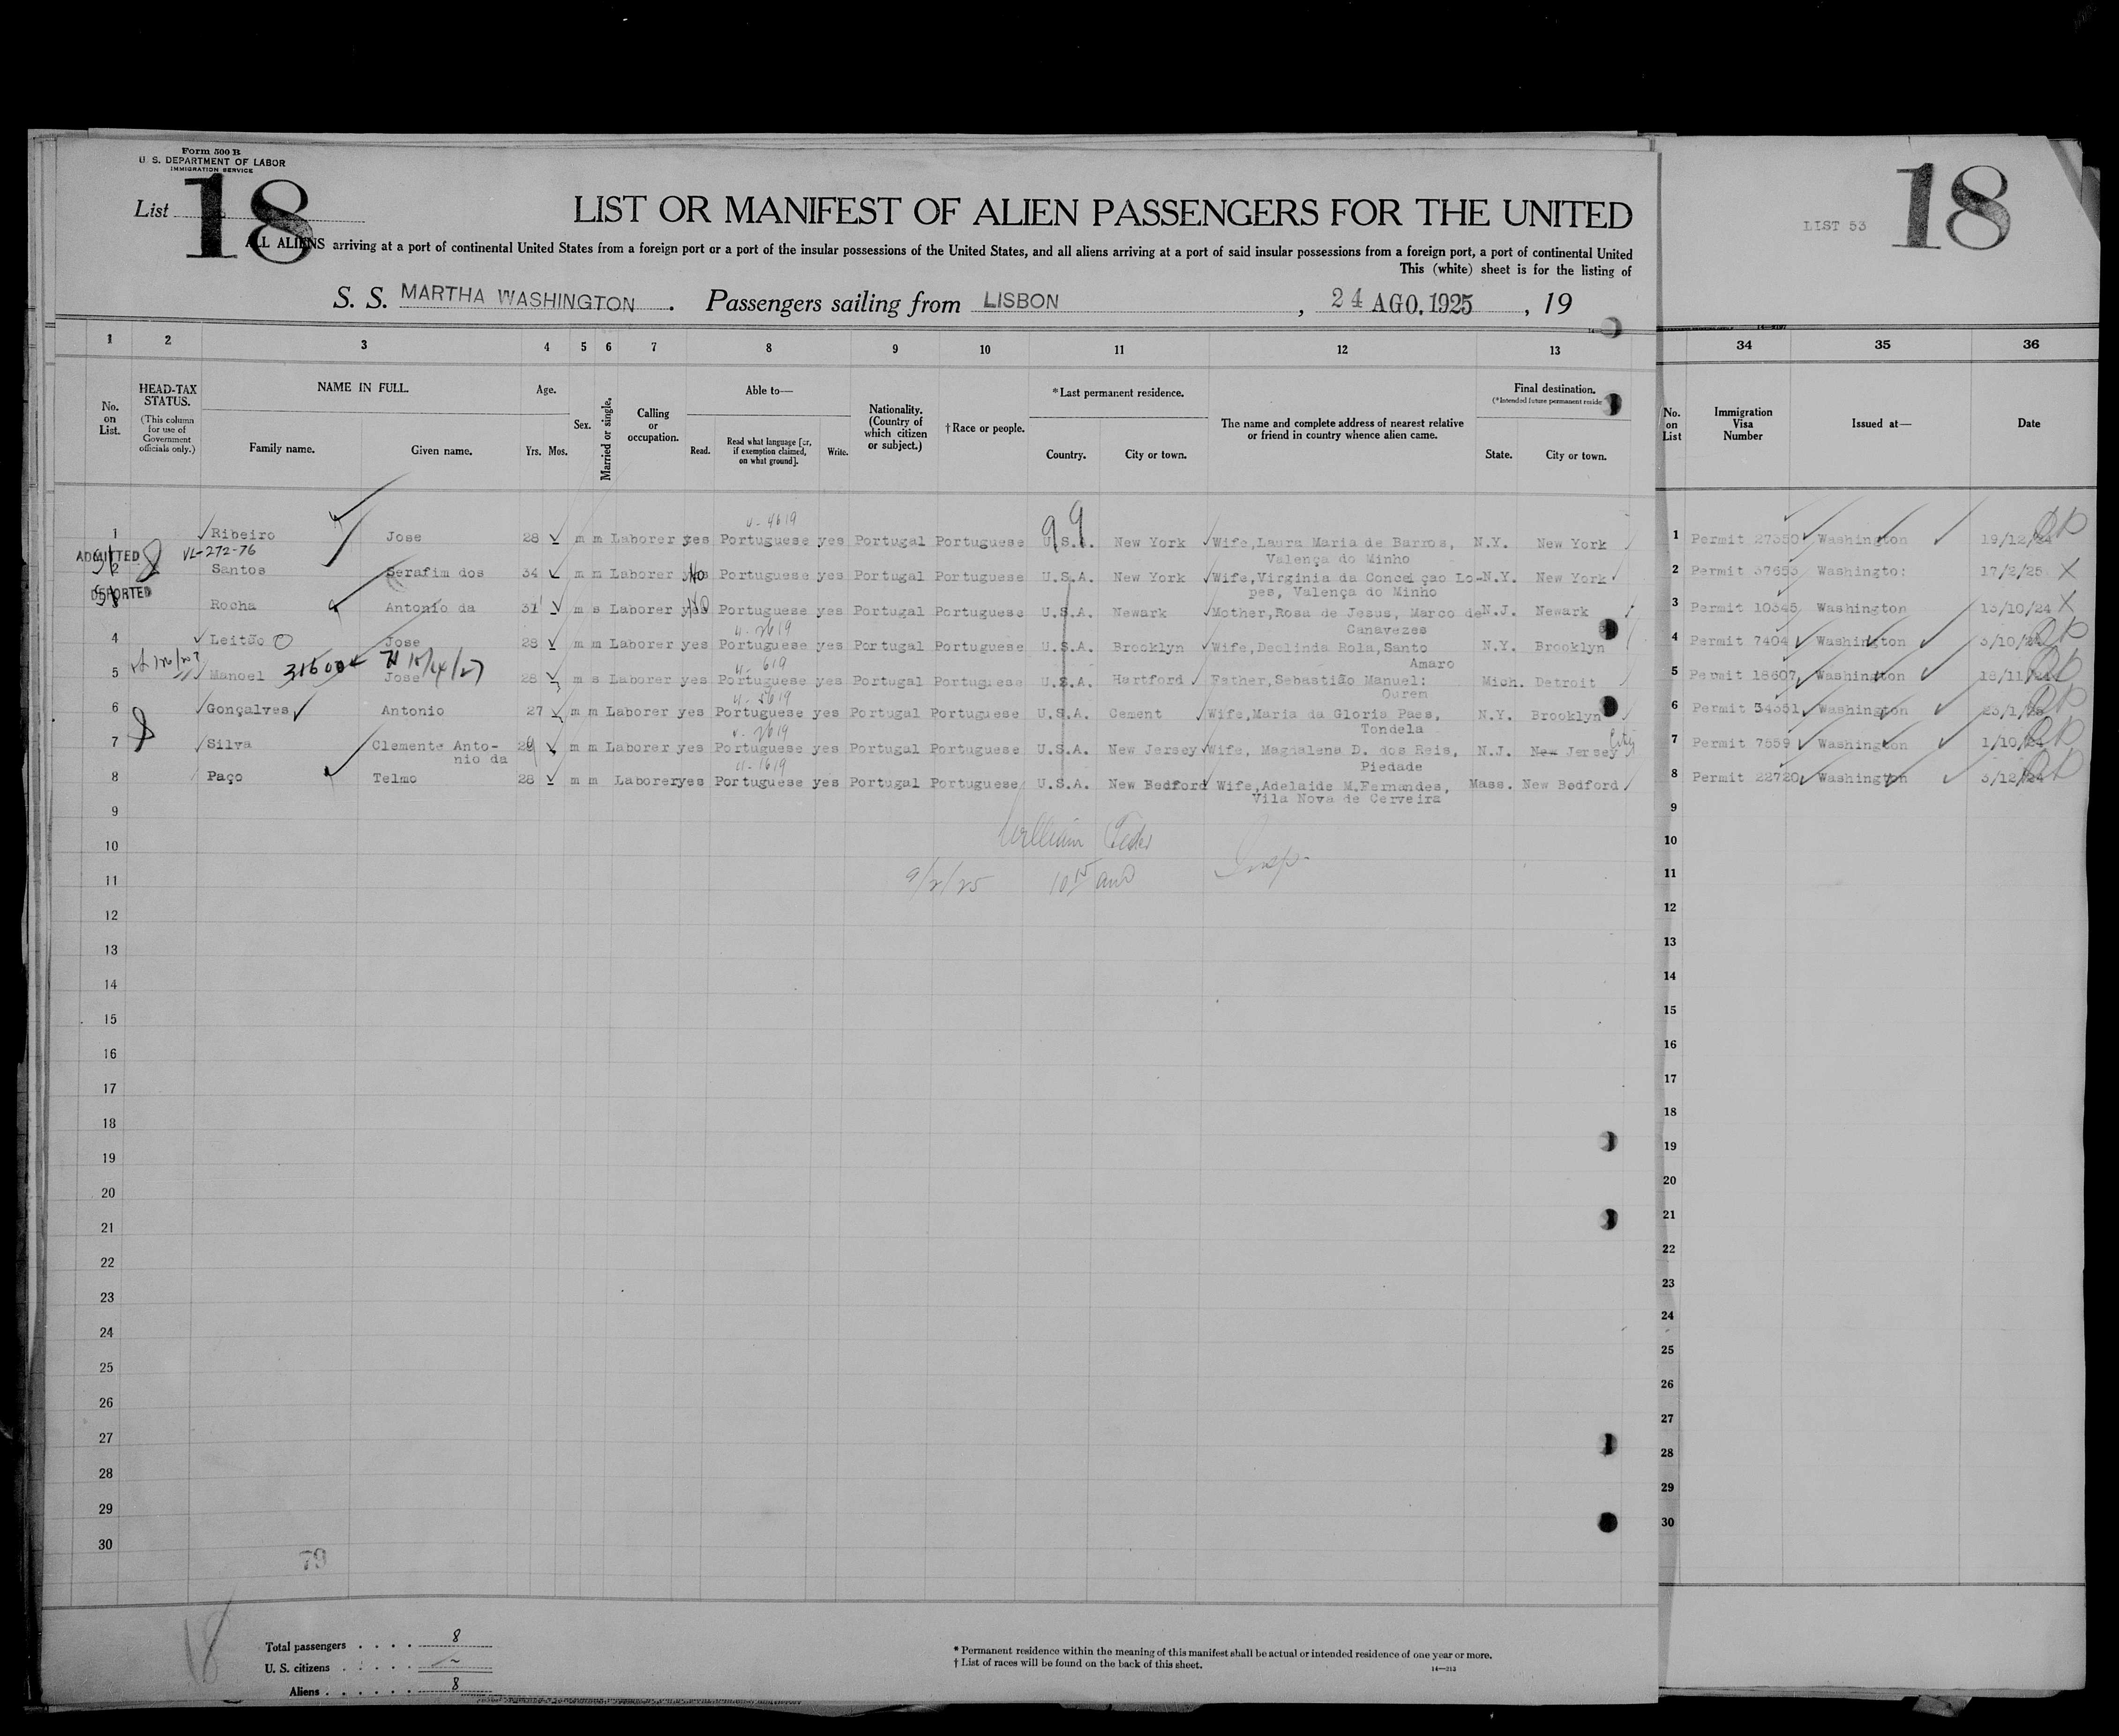 Form 500 B
U. S. DEPARTMENT OF LABOR
IMMIGRATION SERVICE
List 18
18
LIST 53
LIST OR MANIFEST OF ALIEN PASSENGERS FOR THE UNITED
ALL ALIENS arriving at a port of continental United States from a foreign port or a port of the insular possessions of the United States, and all aliens arriving at a port of said insular possessions from a foreign port, a port of continental United
This (white) sheet is for the listing of
S. S. MARTHA WASHINGTON . Passengers sailing from LISBON , 24 AGO. 1925 , 19
1 2 3 4 5 6 7 8 9 10 11 12 13 34 35 36
No. on List.
HEAD-TAX STATUS.
(This column for use of Government officials only.)
NAME IN FULL.
Family name. Given name.
Age.
Yrs. Mos.
Sex.
Married or single.
Calling or occupation.
Able to—
Read. Read what language [or, if exemption claimed, on what ground]. Write.
Nationality. (Country of which citizen or subject.)
† Race or people.
* Last permanent residence.
Country. City or town.
The name and complete address of nearest relative or friend in country whence alien came.
Final destination.
(*Intended future permanent reside
State. City or town.
No. on List
Immigration Visa Number
Issued at—
Date
4-4619
99
1 Ribeiro Jose 28 m m Laborer yes Portuguese yes Portugal Portuguese U.S.A. New York Wife,Laura Maria de Barros, N.Y. New York 1 Permit 27350 Washington 19/12/24
VL-272-76 Valença do Minho
ADMITTED
2 Santos Serafim dos 34 m m Laborer No Portuguese yes Portugal Portuguese U.S.A. New York Wife,Virginia da Concei çao Lo- N.Y. New York 2 Permit 37653 Washingto: 17/2/25 X
pes, Valença do Minho
DEPORTED
3 Rocha Antonio da 31 m s Laborer No Portuguese yes Portugal Portuguese U.S.A. Newark Mother,Rosa de Jesus, Marco de N.J. Newark 3 Permit 10345 Washington 13/10/24 X
Canavezes
4-2619
4 Leitão Jose 28 m m Laborer yes Portuguese yes Portugal Portuguese U.S.A. Brooklyn Wife,Deolinda Rola,Santo N.Y. Brooklyn 4 Permit 7404 Washington 3/10/24
Amaro
4-619
5 Manoel Jose 28 m s Laborer yes Portuguese yes Portugal Portuguese U.S.A. Hartford Father,Sebastião Manuel: Mich. Detroit 5 Permit 18607 Washington 18/11/24
Ourem
4-5619
6 Gonçalves Antonio 27 m m Laborer yes Portuguese yes Portugal Portuguese U.S.A. Cement Wife,Maria da Gloria Paes, N.Y. Brooklyn 6 Permit 34351 Washington 23/1/25
Tondela
2619
7 Silva Clemente Anto- 29 m m Laborer yes Portuguese yes Portugal Portuguese U.S.A. New Jersey Wife, Magdalena D. dos Reis, N.J. New Jersey City 7 Permit 7559 Washington 1/10/24
nio da Piedade
4-1619
8 Paço Telmo 28 m m Laborer yes Portuguese yes Portugal Portuguese U.S.A. New Bedford Wife,Adelaide M.Fernandes, Mass. New Bedford 8 Permit 22720 Washington 3/12/24
Vila Nova de Cerveira
9 9
10 William Insp. 10
11 9/2/25 10 15 am 11
12 12
13 13
14 14
15 15
16 16
17 17
18 18
19 19
20 20
21 21
22 22
23 23
24 24
25 25
26 26
27 27
28 28
29 29
30 30
79
18
Total passengers . . . . 8
U. S. citizens . . . . . ~
Aliens . . . . . . 8
* Permanent residence within the meaning of this manifest shall be actual or intended residence of one year or more.
† List of races will be found on the back of this sheet.
14—213